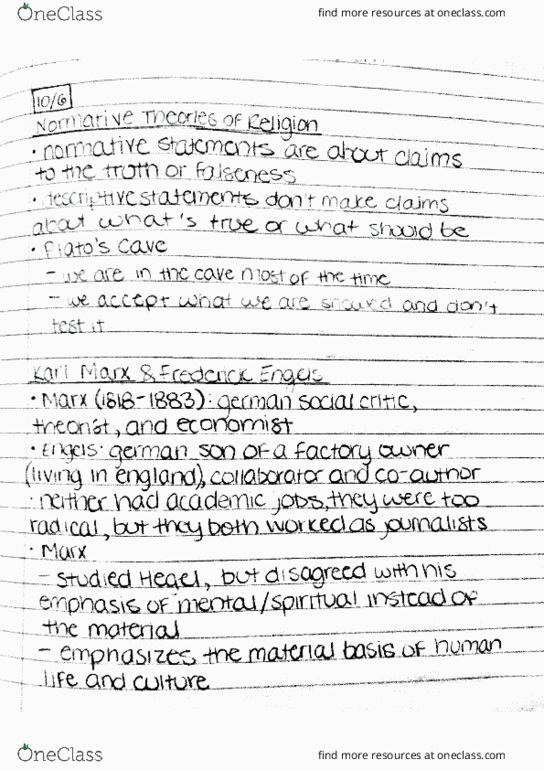 OneClass find more resources at oneclass.com
10/6
Normative Theories of Religion
• normative statements are about claims
to the truth or falseness
• descriptive statements don't make claims
about what's true or what should be
• Plato's cave
- we are in the cave most of the time
- we accept what we are showed and don't
test it
Karl Marx & Frederick Engels
• Marx (1818-1883): german social critic,
theorist, and economist
• Engels: german son of a factory owner
(living in england), collaborator and co-author
• neither had academic jobs, they were too
radical, but they both worked as journalists
• Marx
- studied Hegel, but disagreed with his
emphasis of mental/spiritual instead of
the material
- emphasizes the material basis of human
life and culture
OneClass find more resources at oneclass.com